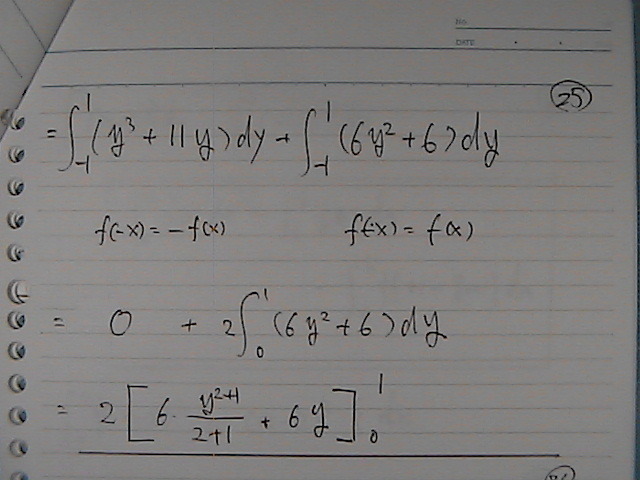 No.
DATE
25
= ∫₋₁¹ (y³ + 11y) dy + ∫₋₁¹ (6y² + 6) dy
f(-x) = -f(x) f(-x) = f(x)
= 0 + 2∫₀¹ (6y² + 6) dy
= 2 [ 6 · y²⁺¹/2+1 + 6y ]₀¹